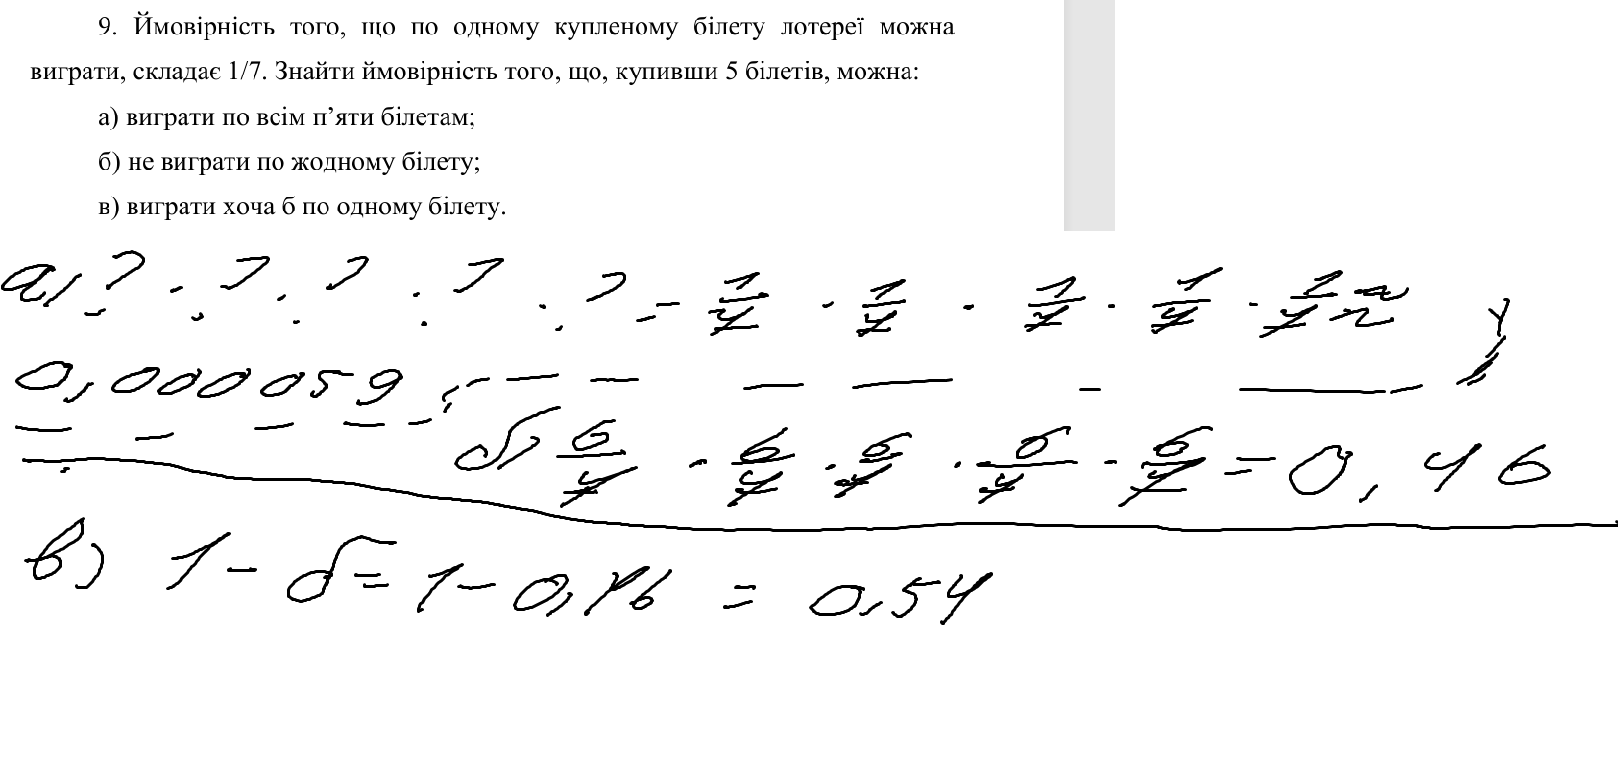 9. Ймовірність того, що по одному купленому білету лотереї можна
виграти, складає 1/7. Знайти ймовірність того, що, купивши 5 білетів, можна:
а) виграти по всім п’яти білетам;
б) не виграти по жодному білету;
в) виграти хоча б по одному білету.
а) ? · ? · ? · ? · ? = 1/7 · 1/7 · 1/7 · 1/7 · 1/7 ≈
0,000059
б) 6/7 · 6/7 · 6/7 · 6/7 · 6/7 = 0,46
в) 1 - б = 1 - 0,46 = 0,54